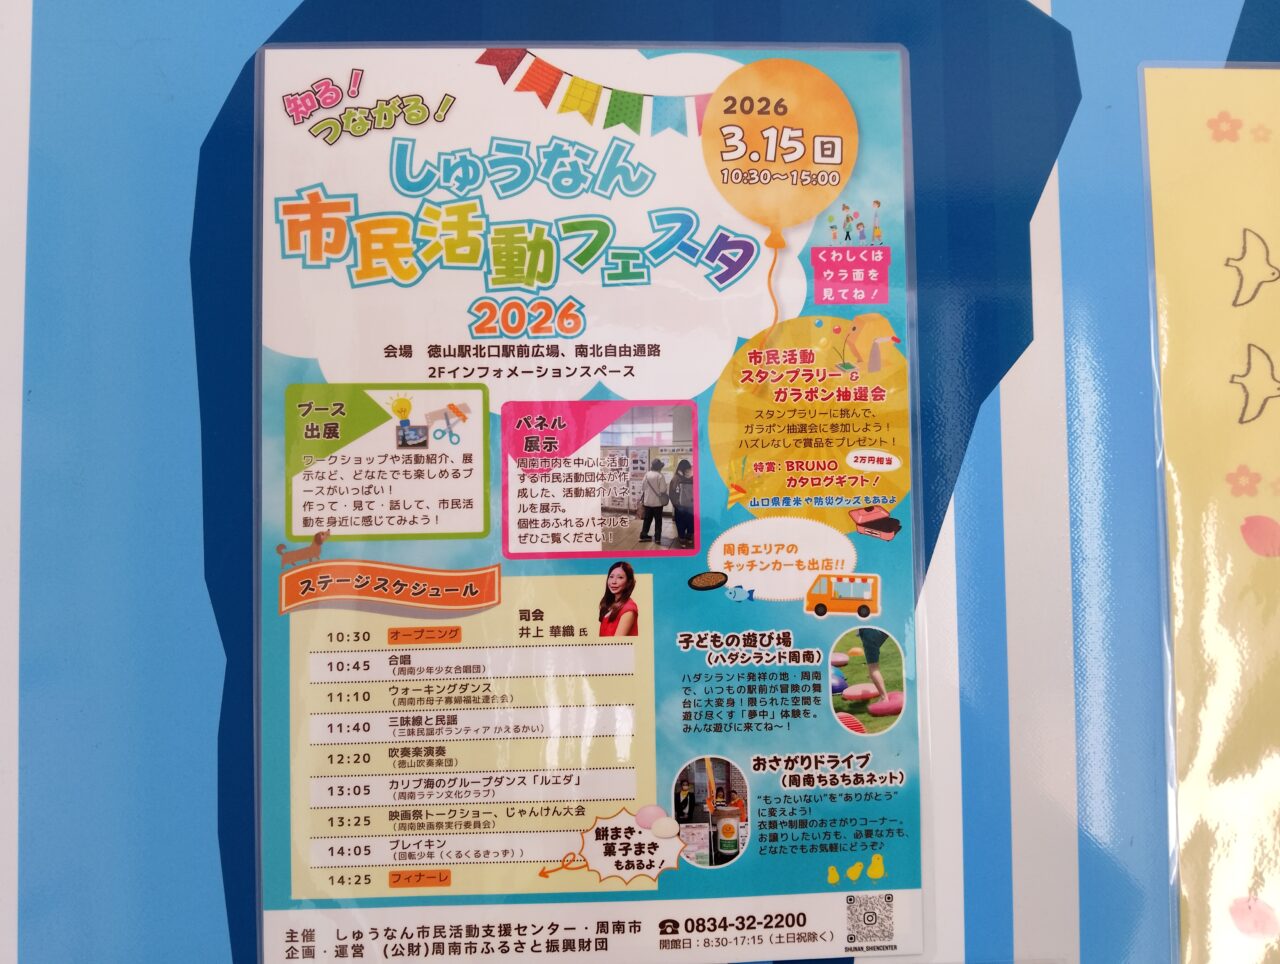 知る!
つながる!
しゅうなん
市民活動フェスタ
2026
2026
3.15 日
10:30～15:00
くわしくは
ウラ面を
見てね!
会場 徳山駅北口駅前広場、南北自由通路
2Fインフォメーションスペース
ブース
出展
ワークショップや活動紹介、展
示など、どなたでも楽しめるブ
ースがいっぱい!
作って・見て・話して、市民活
動を身近に感じてみよう!
パネル
展示
周南市内を中心に活動
する市民活動団体が作
成した、活動紹介パネ
ルを展示。
個性あふれるパネルを
ぜひご覧ください!
市民活動
スタンプラリー &
ガラポン抽選会
スタンプラリーに挑んで、
ガラポン抽選会に参加しよう!
ハズレなしで賞品をプレゼント!
特賞:BRUNO
カタログギフト!
2万円相当
山口県産米や防災グッズもあるよ
周南エリアの
キッチンカーも出店!!
ステージスケジュール
司会
井上 華織 氏
10:30 オープニング
10:45 合唱
(周南少年少女合唱団)
11:10 ウォーキングダンス
(周南市母子寡婦福祉連合会)
11:40 三味線と民謡
(三味民謡ボランティア かえるかい)
12:20 吹奏楽演奏
(徳山吹奏楽団)
13:05 カリブ海のグループダンス「ルエダ」
(周南ラテン文化クラブ)
13:25 映画祭トークショー、じゃんけん大会
(周南映画祭実行委員会)
14:05 ブレイキン
(回転少年(くるくるきっず))
14:25 フィナーレ
餅まき・
菓子まき
もあるよ!
子どもの遊び場
(ハダシランド周南)
ハダシランド発祥の地・周南
で、いつもの駅前が冒険の舞
台に大変身!限られた空間を
遊び尽くす「夢中」体験を。
みんな遊びに来てね～!
おさがりドライブ
(周南ちるちあネット)
"もったいない"を"ありがとう"
に変えよう!
衣類や制服のおさがりコーナー。
お譲りしたい方も、必要な方も、
どなたでもお気軽にどうぞ♪
主催 しゅうなん市民活動支援センター・周南市
企画・運営 (公財)周南市ふるさと振興財団
☎0834-32-2200
開館日:8:30-17:15(土日祝除く)
SHUNAN_SHIENCENTER